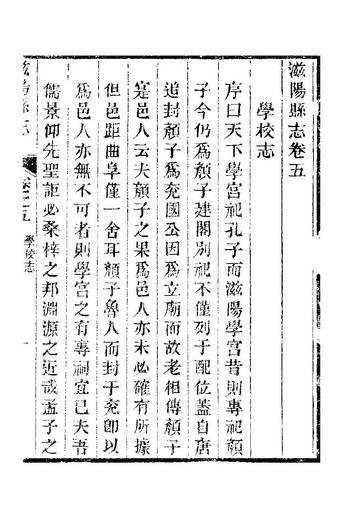 滋陽縣志卷五
學校志
序曰天下學宮祀孔子而滋陽學宮昔則專祀顏
子今仍爲顏子建閣別祀不僅列于配位蓋自唐
追封顏子爲兗國公因爲立廟而故老相傳顏子
寔邑人云夫顏子之果爲邑人亦未必確有所據
但邑距曲阜僅一舍耳顏子魯人而封于兗卽以
爲邑人亦無不可者則學宮之有專祠宜已夫吾
儒景仰先聖詎必桑梓之邦淵源之近哉孟子之
學校志